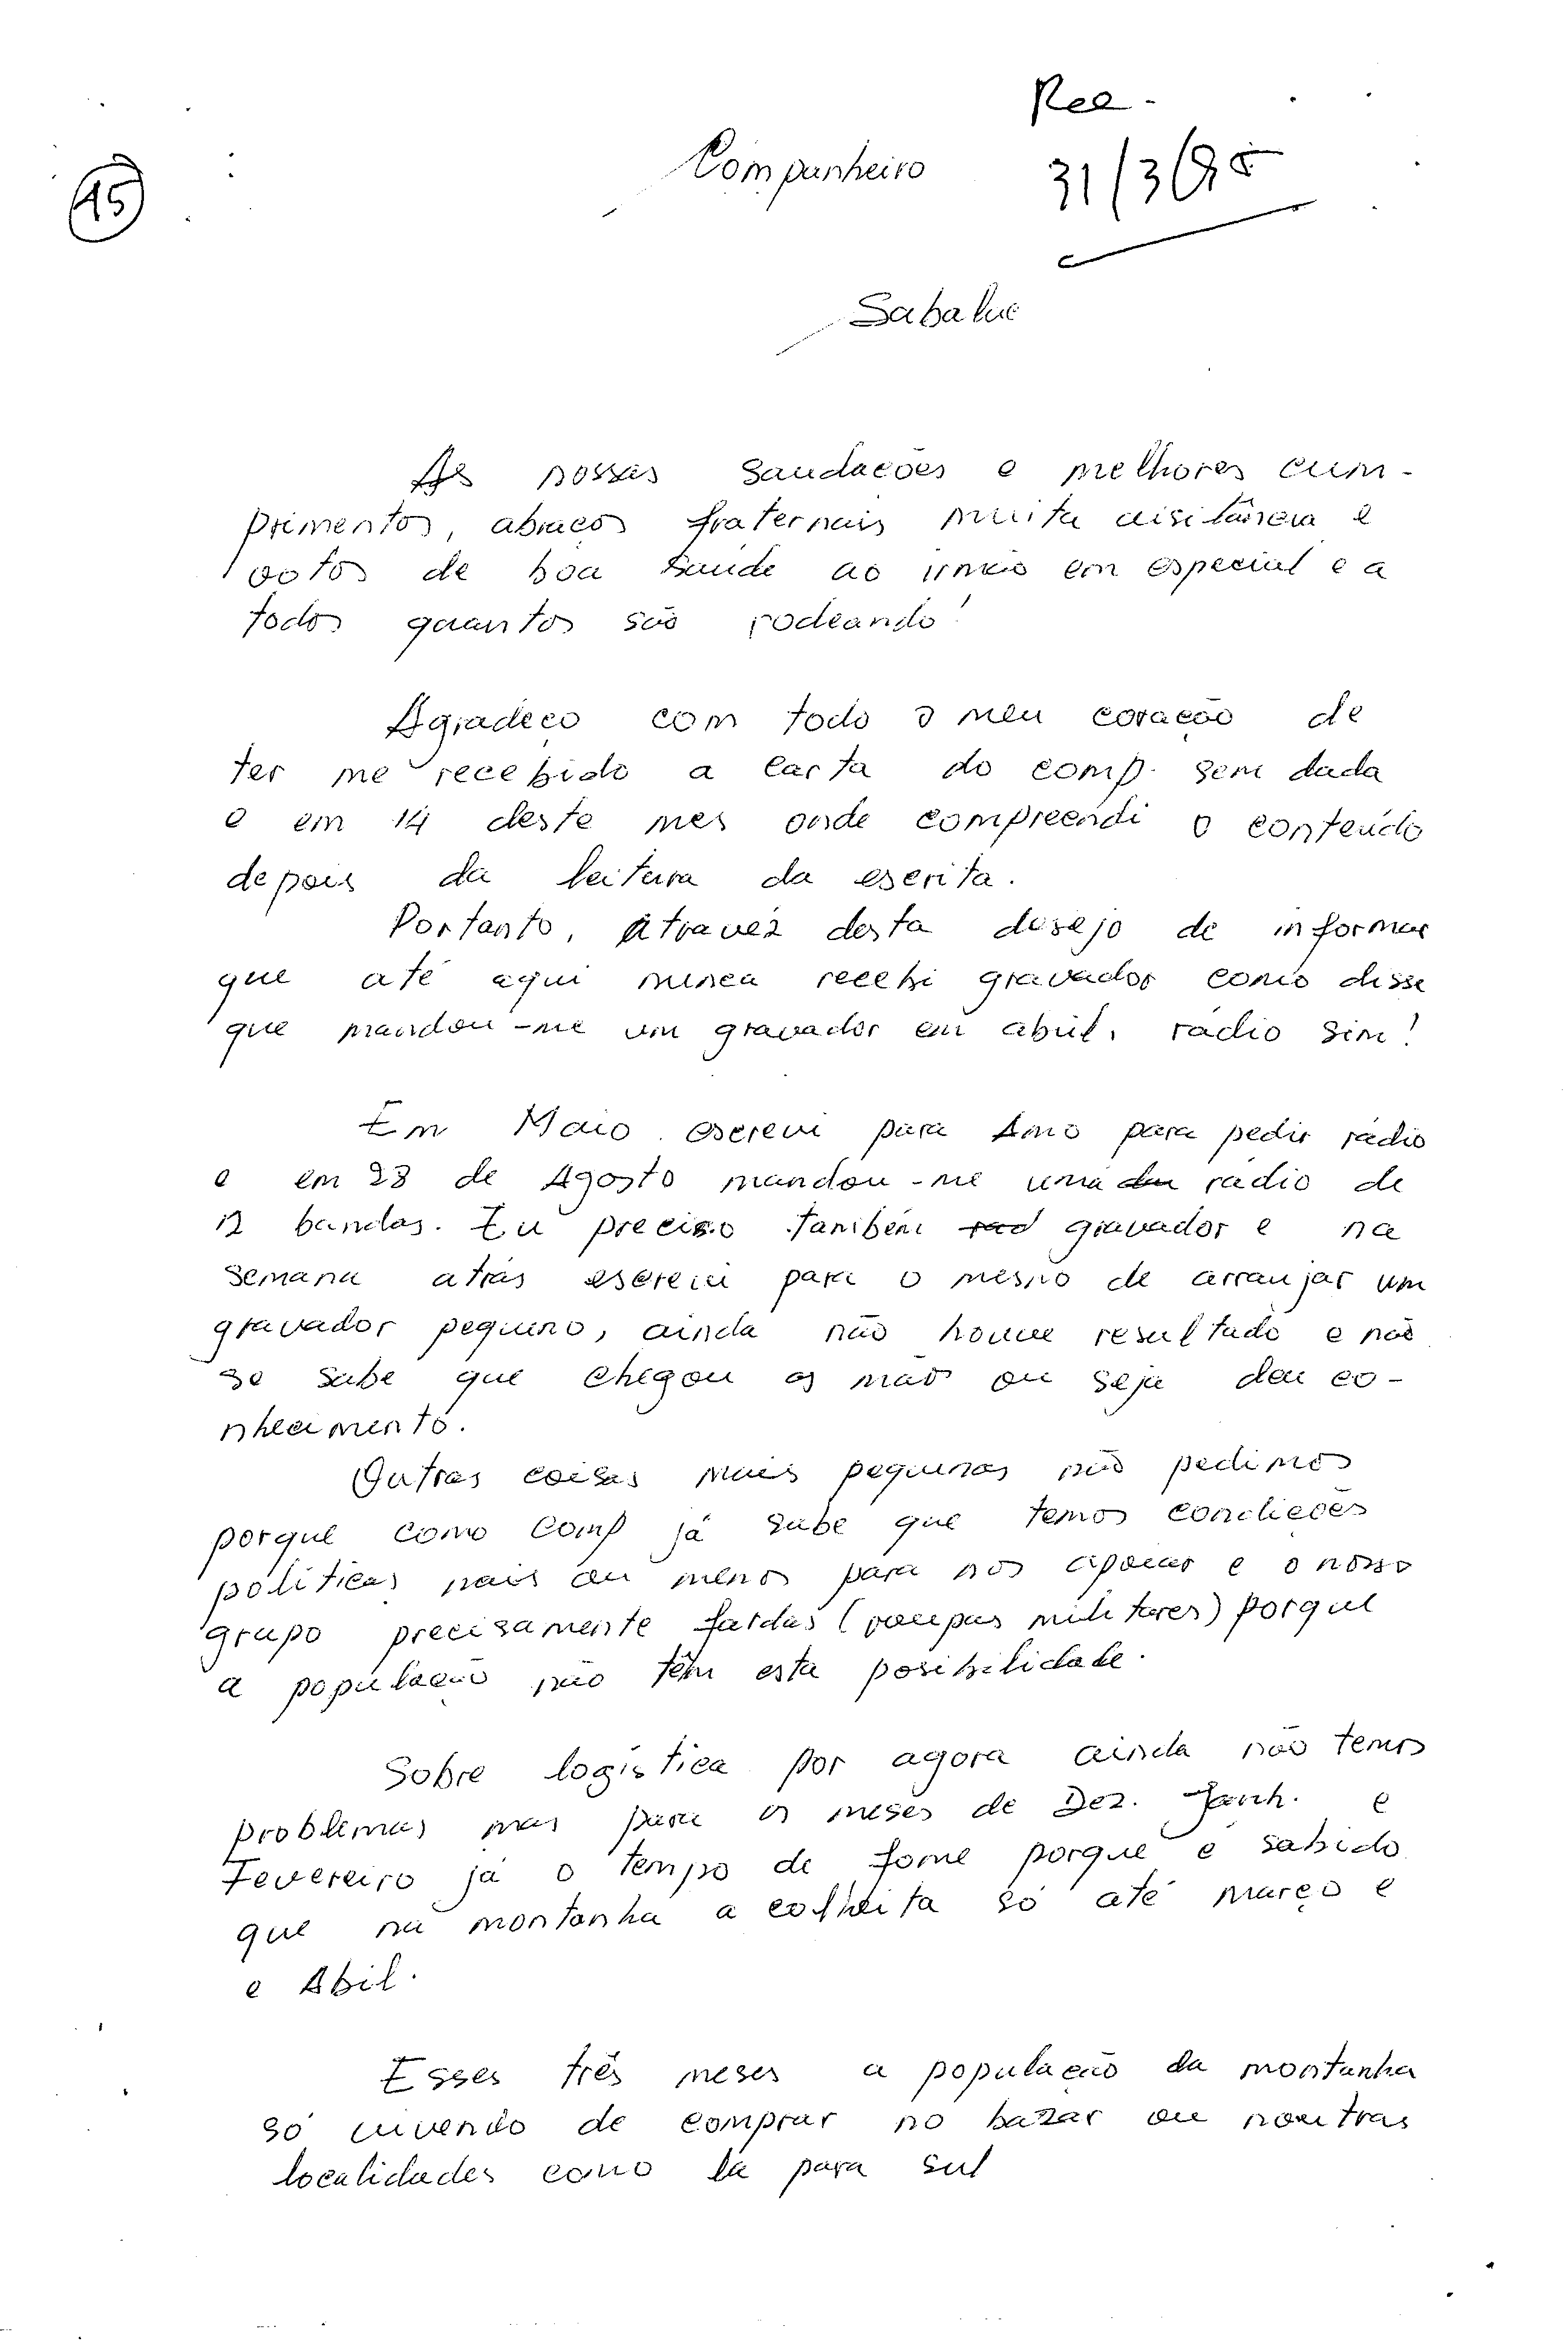 Rec.
Companheiro 31/3/95
15
Sabalae
As nossas saudacões e melhores cum-
primentos, abracos fraternais muita disitância e
votos de boa saude ao irmão em especial e a
todos quantos são rodeando!
Agradeço com todo o meu coração de
ter me recebido a carta do comp. sem dada
e em 14 deste mes onde compreendi o conteúdo
depois da leitura da escrita.
Portanto, atravez desta desejo de informar
que até aqui nunca recebi gravador como disse
que mandou-me um gravador em abril, rádio sim!
Em Maio escrevi para Amo para pedir rádio
e em 28 de Agosto mandou-me uma rádio de
12 bandas. Eu preciso também gravador e na
semana atrás escrevi para o mesmo de arranjar um
gravador pequeno, ainda não houve resultado e não
se sabe que chegou as mão ou seja deu co-
nhecimento.
Outras coisas mais pequenas não pedimos
porque como comp já sabe que temos condicões
políticas mais ou menos para nos apoiar e o nosso
grupo precisamente fardas (roupas militares) porque
a populacão não têm esta posibilidade.
Sobre logística por agora ainda não temos
problemas mas para os meses de Dez. Janh. e
Fevereiro já o tempo de fome porque é sabido
que na montanha a colheita só até março e
e Abil.
Esses três meses a populacão da montanha
só vivendo de comprar no bazar ou noutras
localidades como lá para sul